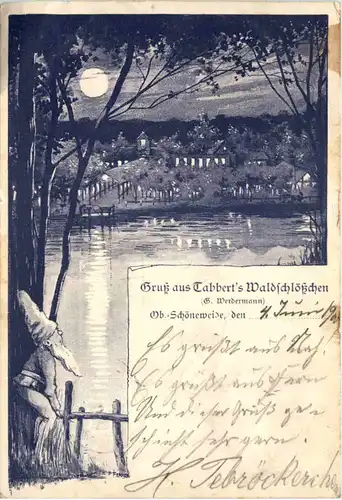 Gruß aus Tabbert's Waldschlößchen
(G. Werdermann)
Ob.-Schöneweide, den 4. Juni
Es grüßt aus Nah.
Es grüßt aus Fern
Und dieser Gruß ge=
schieht sehr gern.
H. Tebröckerich